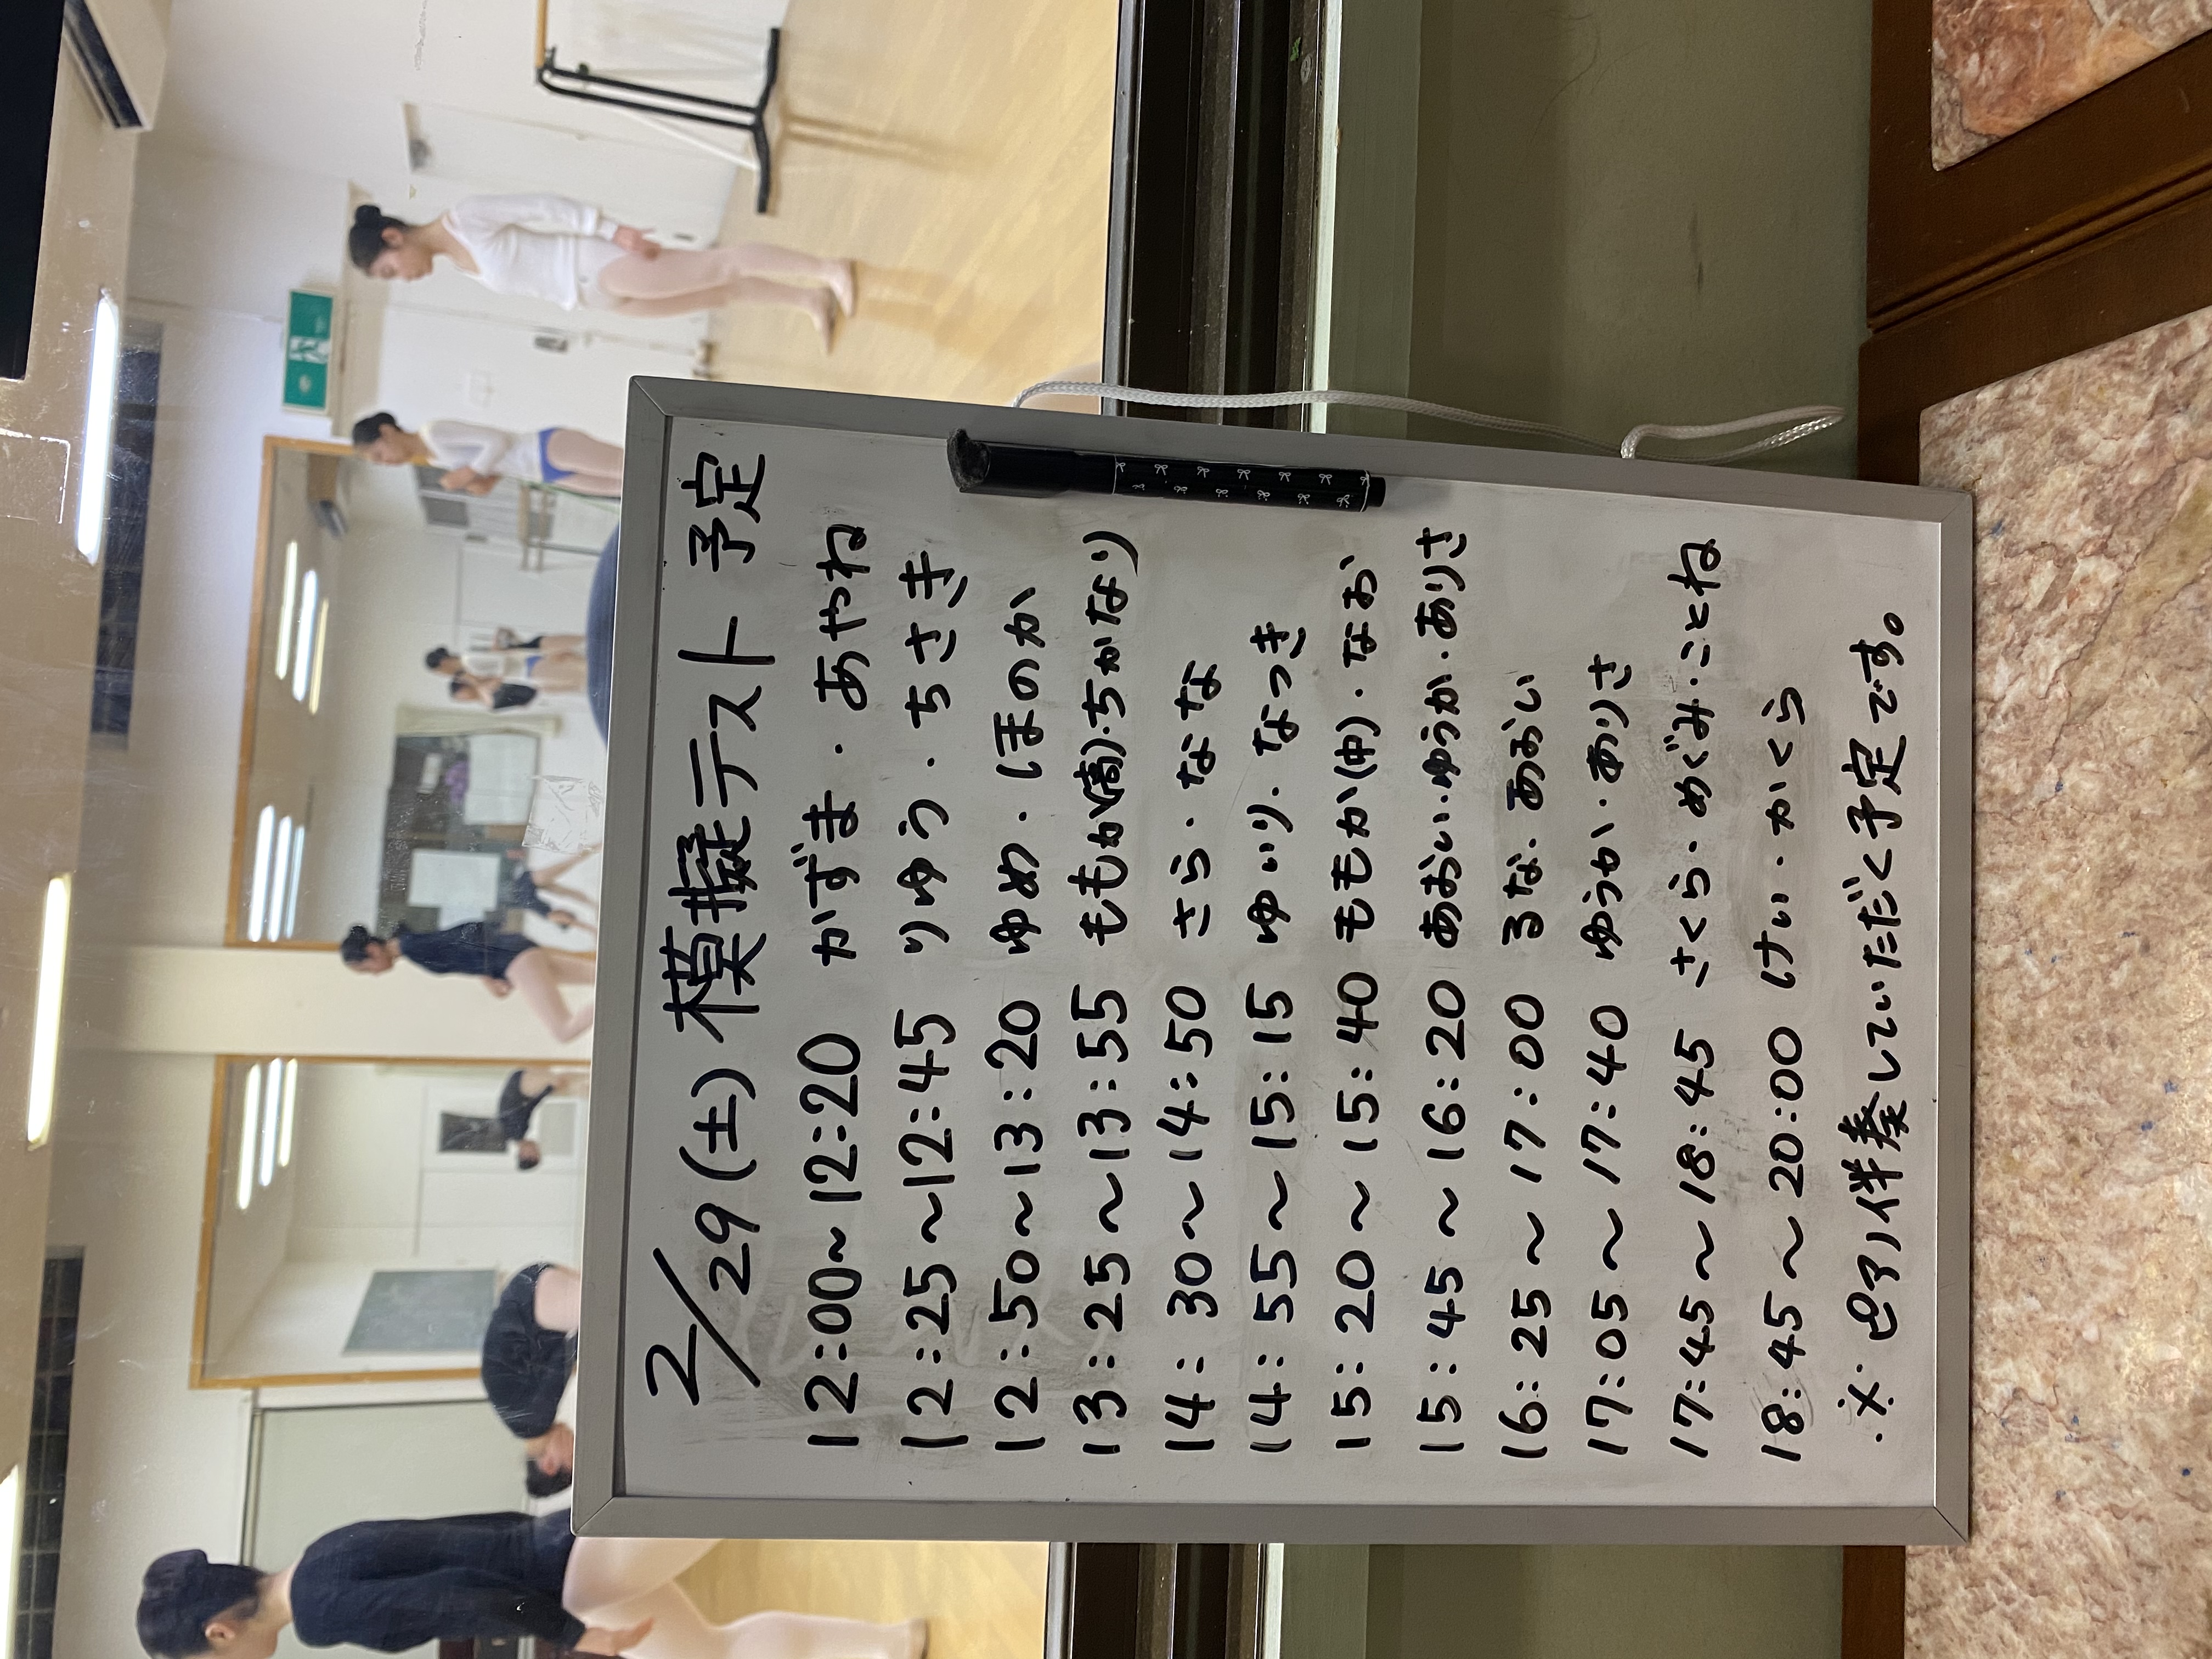 2/29(土)模擬テスト 予定
12:00〜12:20 かずま・あやね
12:25〜12:45 りゆう・ちさき
12:50〜13:20 ゆめ・ほのか
13:25〜13:55 ももか(高)・ちかなり
14:30〜14:50 さら・なな
14:55〜15:15 ゆいり・なつき
15:20〜15:40 ももか(中)・なお
15:45〜16:20 あおい・ゆうか・ありさ
16:25〜17:00 るな・あおい
17:05〜17:40 ゆうか・ありさ
17:45〜18:45 さくら・めぐみ・ことね
18:45〜20:00 けい・かくら
※ピアノ伴奏していただく予定です。